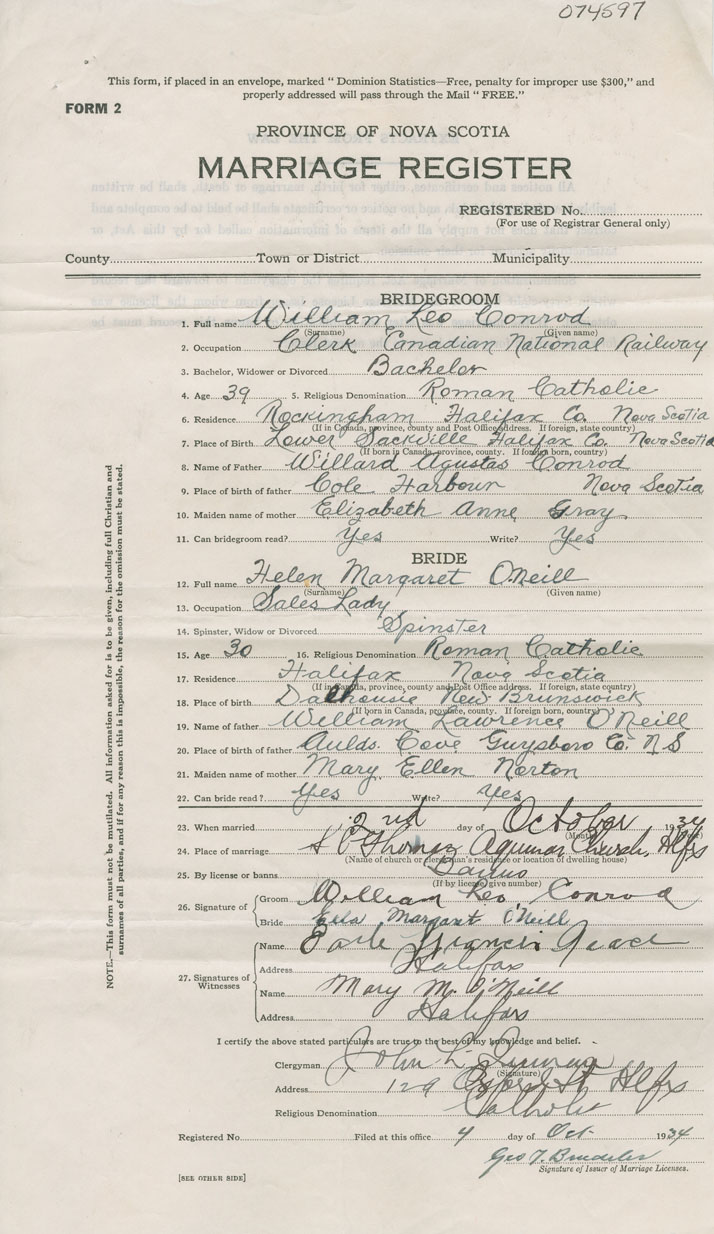 074597
This form, if placed in an envelope, marked " Dominion Statistics—Free, penalty for improper use $300," and
properly addressed will pass through the Mail " FREE."
FORM 2
PROVINCE OF NOVA SCOTIA
MARRIAGE REGISTER
REGISTERED No.
(For use of Registrar General only)
County Town or District Municipality
BRIDEGROOM
1. Full name William Leo Conrod
(Surname) (Given name)
2. Occupation Clerk Canadian National Railway
3. Bachelor, Widower or Divorced Bachelor
4. Age 39 5. Religious Denomination Roman Catholic
6. Residence Rockingham Halifax Co. Nova Scotia
(If in Canada, province, county and Post Office address. If foreign, state country)
7. Place of Birth Lower Sackville Halifax Co. Nova Scotia
(If born in Canada, province, county. If foreign born, country)
8. Name of Father Willard Agustas Conrod
9. Place of birth of father Cole Harbour Nova Scotia
10. Maiden name of mother Elizabeth Anne Gray
11. Can bridegroom read? Yes Write? Yes
BRIDE
12. Full name Helen Margaret O'Neill
(Surname) (Given name)
13. Occupation Sales Lady
14. Spinster, Widow or Divorced Spinster
15. Age 30 16. Religious Denomination Roman Catholic
17. Residence Halifax Nova Scotia
(If in Canada, province, county and Post Office address. If foreign, state country)
18. Place of birth Dalhousie New Brunswick
(If born in Canada, province, county. If foreign born, country)
19. Name of father William Lawrence O'Neill
20. Place of birth of father Aulds. Cove Guysboro Co. N S
21. Maiden name of mother Mary Ellen Norton
22. Can bride read? Yes Write? Yes
23. When married 2nd day of October 1934
(Month)
24. Place of marriage St Thomas Aquinas Church, Hlfx
(Name of church or clergyman's residence or location of dwelling house)
25. By license or banns Banns
(If by license give number)
26. Signature of Groom William Leo Conrod
Bride Margaret O'Neill
27. Signatures of Witnesses Name Earle Francis
Address Halifax
Name Mary M. O'Neill
Address Halifax
I certify the above stated particulars are true to the best of my knowledge and belief.
Clergyman John L.
(Signature)
Address 129 Oxford St Hlfx
Religious Denomination Catholic
Registered No. Filed at this office 4 day of Oct 1934
Geo T.
Signature of Issuer of Marriage Licenses.
[SEE OTHER SIDE]
NOTE.—This form must not be mutilated. All information asked for is to be given, including full Christian and
surnames of all parties, and if for any reason this is impossible, the reason for the omission must be stated.